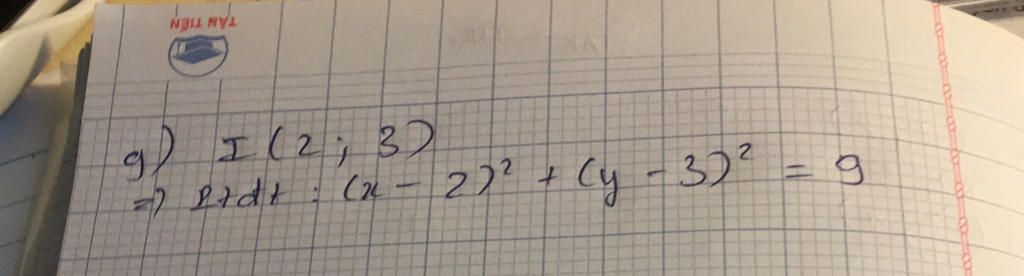 TÂN TIẾN
g) I (2 ; 3)
=> Ptdt : (x - 2)² + (y - 3)² = 9